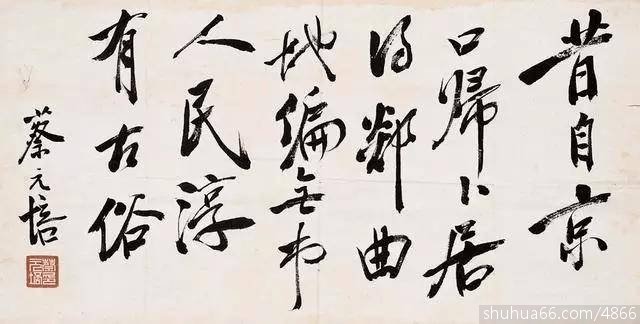 昔自京
口歸卜居
得鄰曲
地偏無市
人民淳
有古俗
蔡元培
shuhua66.com/4866